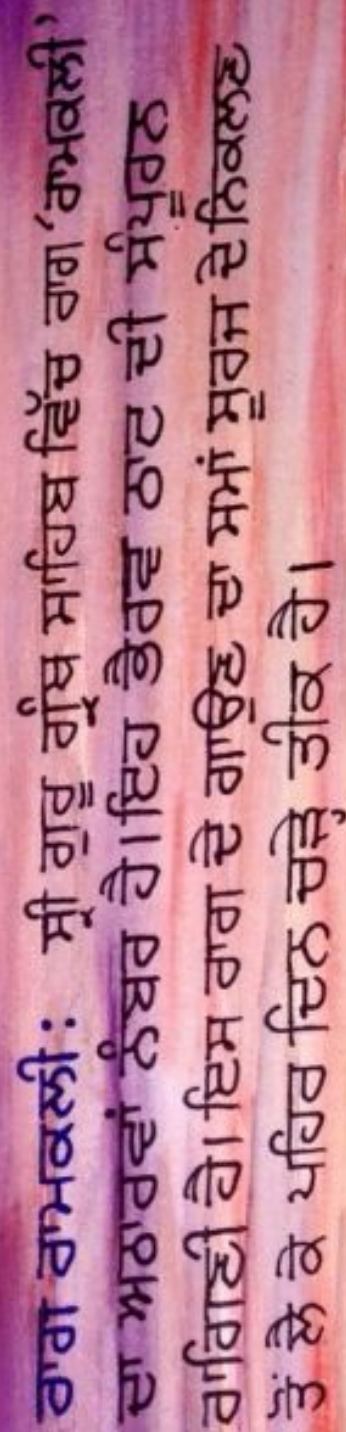 ਰਾਗ ਰਾਮਕਲੀ: ਸ੍ਰੀ ਗੁਰੂ ਗ੍ਰੰਥ ਸਾਹਿਬ ਵਿੱਚ ਰਾਗ ‘ਰਾਮਕਲੀ’
ਦਾ ਅਠਾਰਵਾਂ ਨੰਬਰ ਹੈ।ਇਹ ਭੈਰਵ ਠਾਟ ਦੀ ਸੰਪੂਰਨ
ਰਾਗਿਣੀ ਹੈ।ਇਸ ਰਾਗ ਦੇ ਗਾਉਣ ਦਾ ਸਮਾਂ ਸੂਰਜ ਦੇ ਨਿਕਲਣ
ਤੋਂ ਲੈ ਕੇ ਪਹਿਰ ਦਿਨ ਚੜ੍ਹੇ ਤੀਕ ਹੈ।